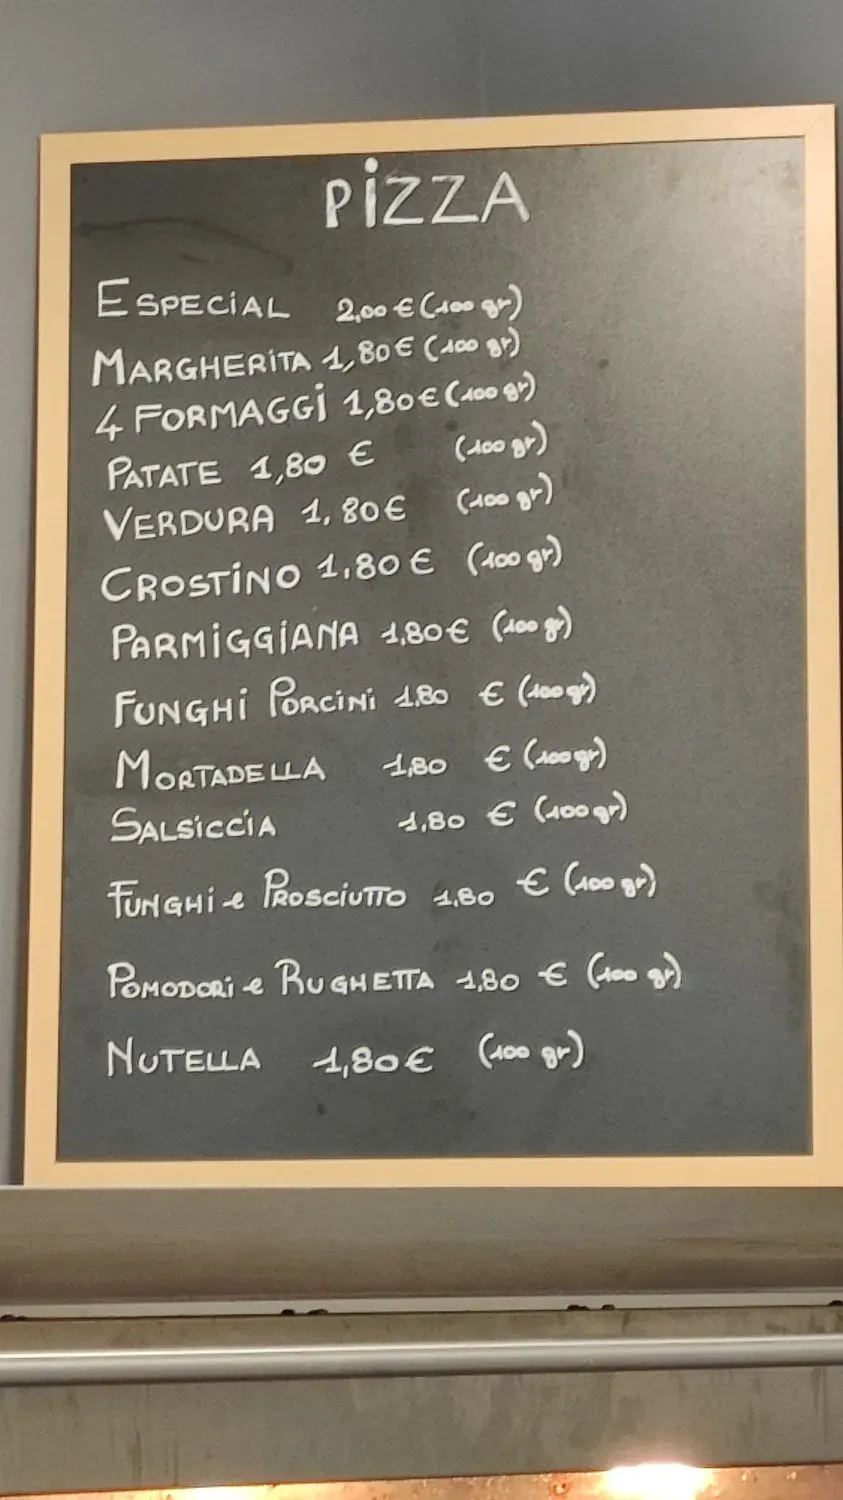 PiZZA
ESPECiAL 2,00 € (100 gr)
MARGHERiTA 1,80 € (100 gr)
4 FORMAGGi 1,80 € (100 gr)
PATATE 1,80 € (100 gr)
VERDURA 1,80 € (100 gr)
CROSTiNO 1,80 € (100 gr)
PARMiGGiANA 1,80 € (100 gr)
FUNGHi PORCiNi 1,80 € (100 gr)
MORTADELLA 1,80 € (100 gr)
SALSiCCiA 1,80 € (100 gr)
FUNGHi e PROSCiUTTO 1,80 € (100 gr)
POMODORi e RUGHETTA 1,80 € (100 gr)
NUTELLA 1,80 € (100 gr)